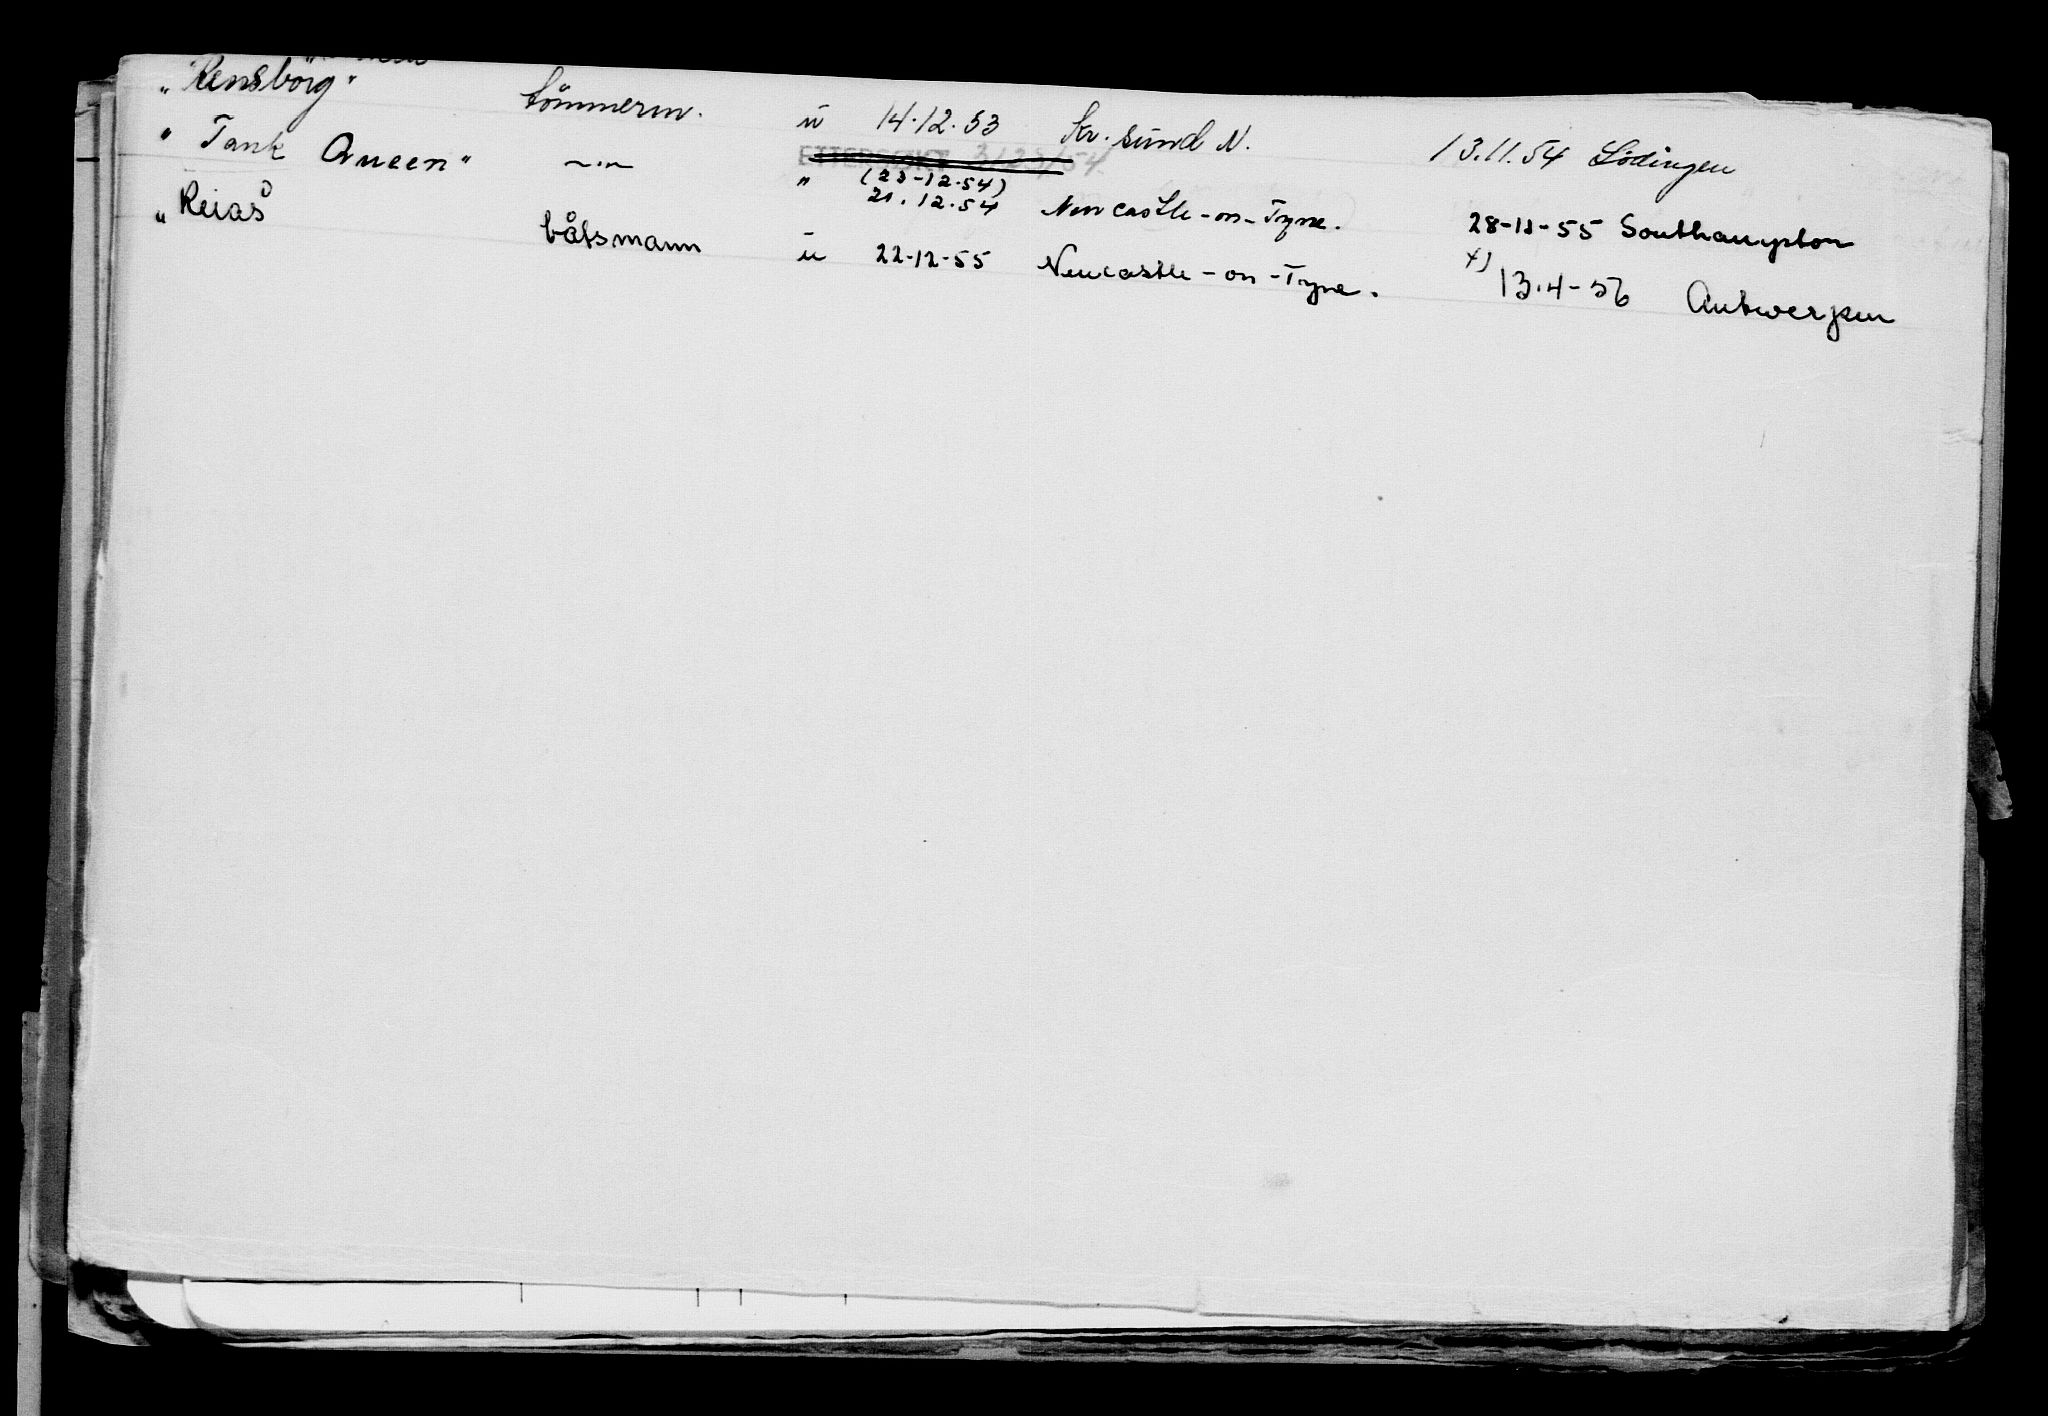 „ Rensborg" tømmerm. u 14.12.53 Kr. sund N. 13.11.54 Lødingen
ETTERSØKT 3/23/54
" Tank Queen" -"- " (23-12-54) 21.12.54 Newcastle-on-Tyne. 28-11-55 Southampton
„ Reiås båtsmann u 22-12-55 Newcastle-on-Tyne. x) 13.4-56 Antwerpen